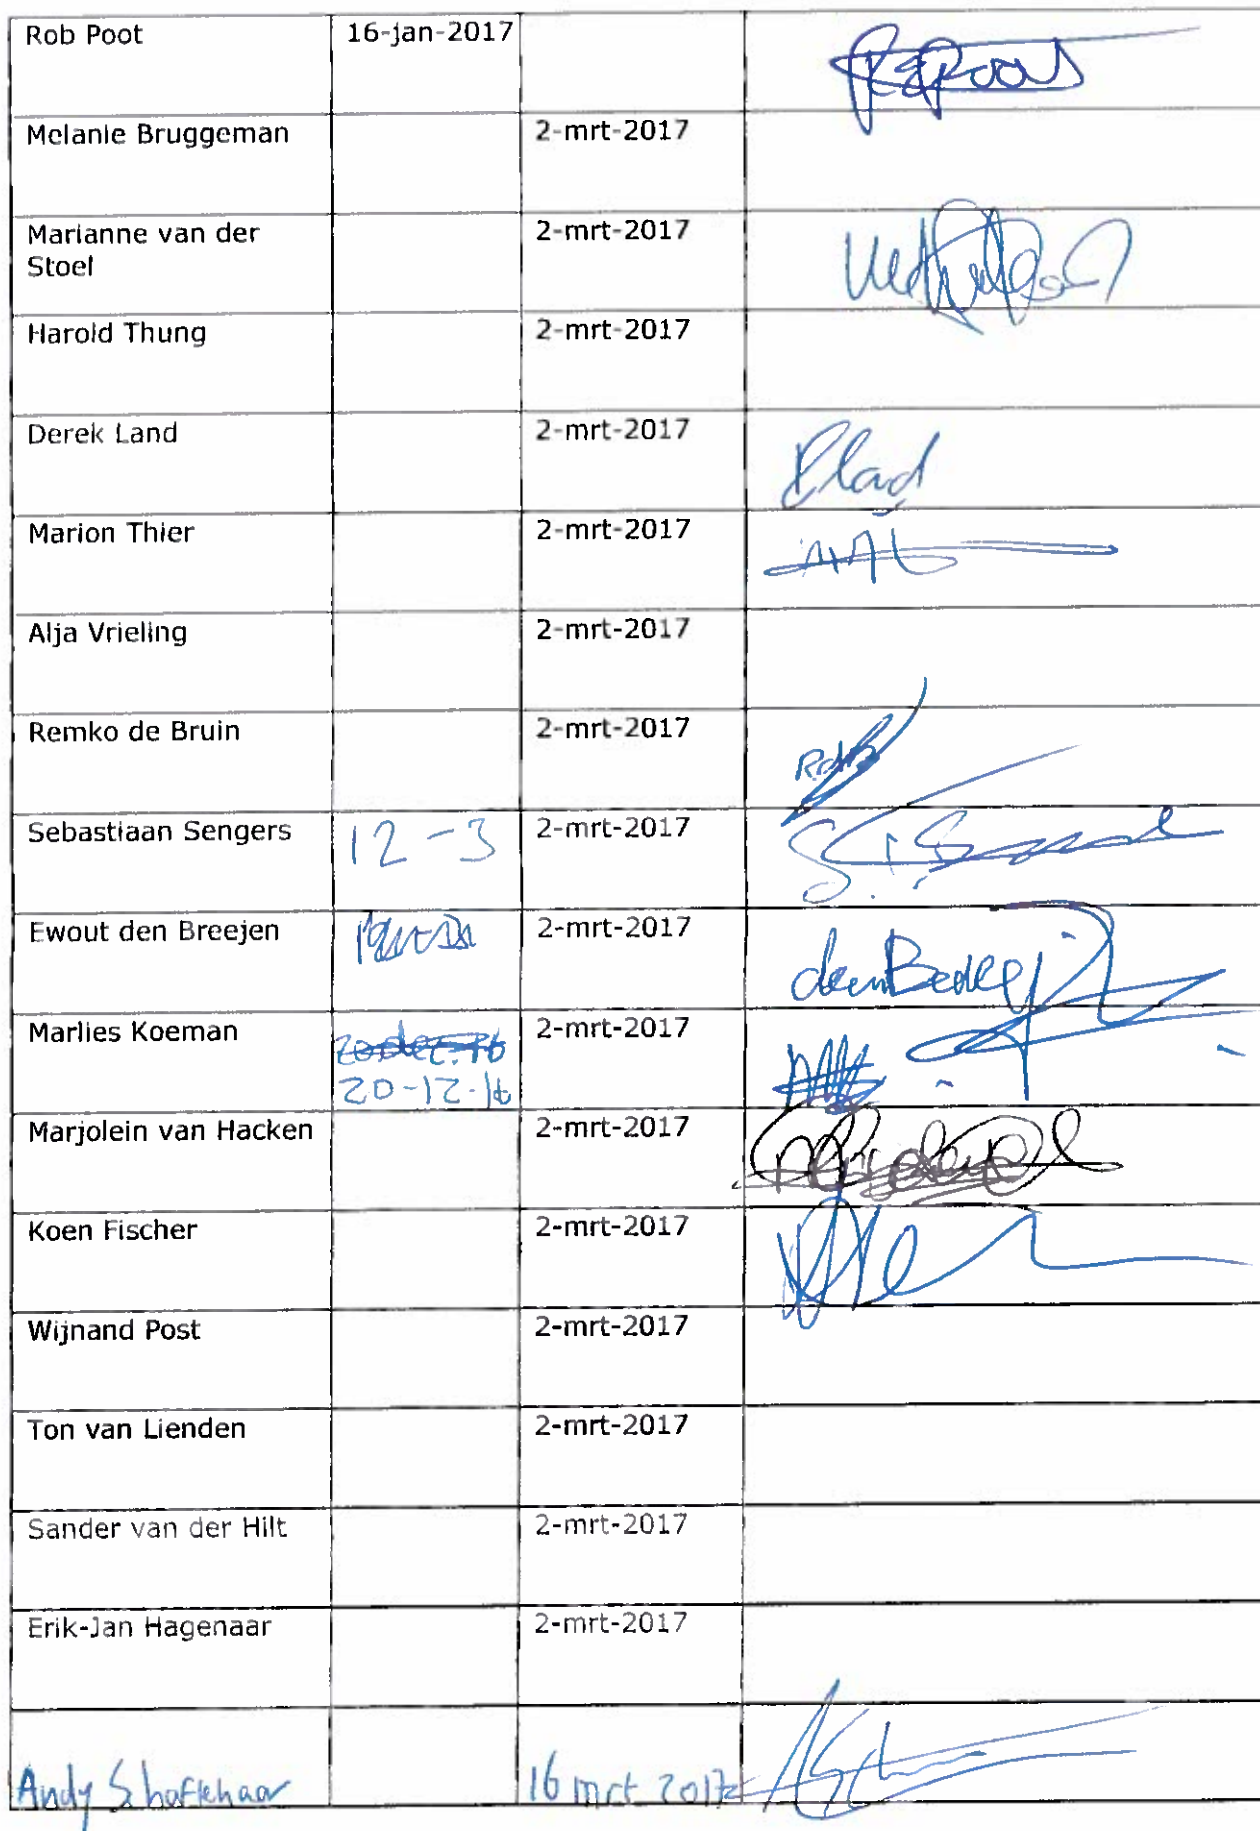 Rob Poot 16-jan-2017
Melanie Bruggeman 2-mrt-2017
Marianne van der 2-mrt-2017
Stoel
Harold Thung 2-mrt-2017
Derek Land 2-mrt-2017
Marion Thier 2-mrt-2017
Alja Vrieling 2-mrt-2017
Remko de Bruin 2-mrt-2017
RdB
Sebastiaan Sengers 12-3 2-mrt-2017
Ewout den Breejen 2-mrt-2017
Marlies Koeman 2-mrt-2017
20-12-16
Marjolein van Hacken 2-mrt-2017
Koen Fischer 2-mrt-2017
Wijnand Post 2-mrt-2017
Ton van Lienden 2-mrt-2017
Sander van der Hilt 2-mrt-2017
Erik-Jan Hagenaar 2-mrt-2017
Andy 16 mrt 2017